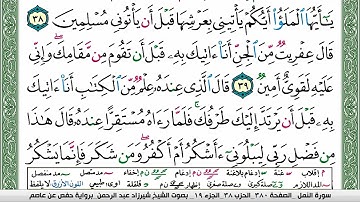 يَـٰٓأَيُّهَا ٱلْمَلَؤُا۟ أَيُّكُمْ يَأْتِينِى بِعَرْشِهَا قَبْلَ أَن يَأْتُونِى مُسْلِمِينَ ٣٨
قَالَ عِفْرِيتٌ مِّنَ ٱلْجِنِّ أَنَا۠ ءَاتِيكَ بِهِۦ قَبْلَ أَن تَقُومَ مِن مَّقَامِكَ ۖ وَإِنِّى
عَلَيْهِ لَقَوِىٌّ أَمِينٌ ٣٩ قَالَ ٱلَّذِى عِندَهُۥ عِلْمٌ مِّنَ ٱلْكِتَـٰبِ أَنَا۠ ءَاتِيكَ
بِهِۦ قَبْلَ أَن يَرْتَدَّ إِلَيْكَ طَرْفُكَ ۚ فَلَمَّا رَءَاهُ مُسْتَقِرًّا عِندَهُۥ قَالَ هَـٰذَا
مِن فَضْلِ رَبِّى لِيَبْلُوَنِىٓ ءَأَشْكُرُ أَمْ أَكْفُرُ ۖ وَمَن شَكَرَ فَإِنَّمَا يَشْكُرُ
سورة النمل _ الصفحة ٣٨٠_ الحزب ٣٨_ الجزء ١٩_ بصوت الشيخ شيرزاد عبد الرحمن _ برواية حفص عن عاصم